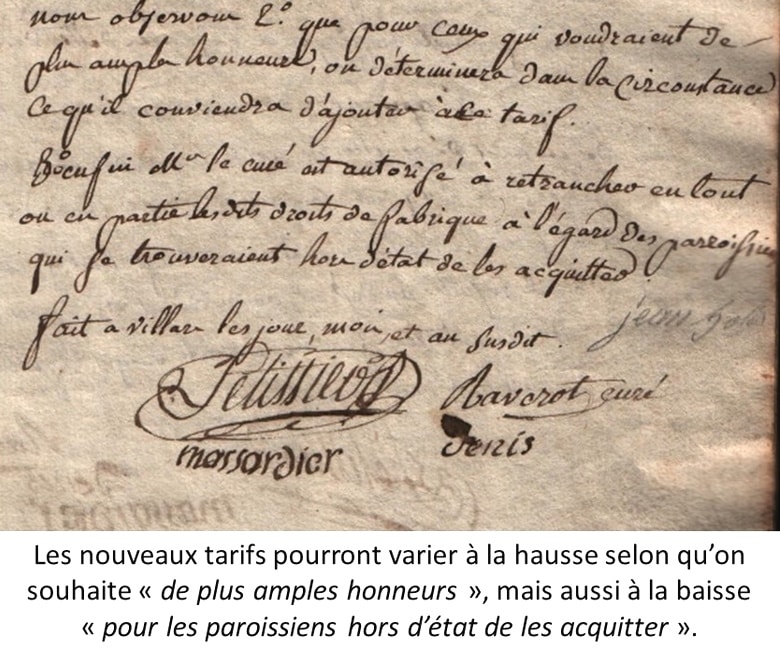 nous observons 2.° que pour ceux qui voudraient de
plus amples honneurs, on déterminera dans la circonstance
ce qu'il conviendra d'ajouter à ce tarif.
Mr le curé est autorisé à retrancher en tout
ou en partie lesdits droits de fabrique à l'égard des parroissiens
qui se trouveraient hors d'état de les acquitter.
fait a villars les jour, mois, et an susdit.
jean
Pelissier
Raverot curé
massardier
Denis
Les nouveaux tarifs pourront varier à la hausse selon qu’on
souhaite « de plus amples honneurs », mais aussi à la baisse
« pour les paroissiens hors d’état de les acquitter ».